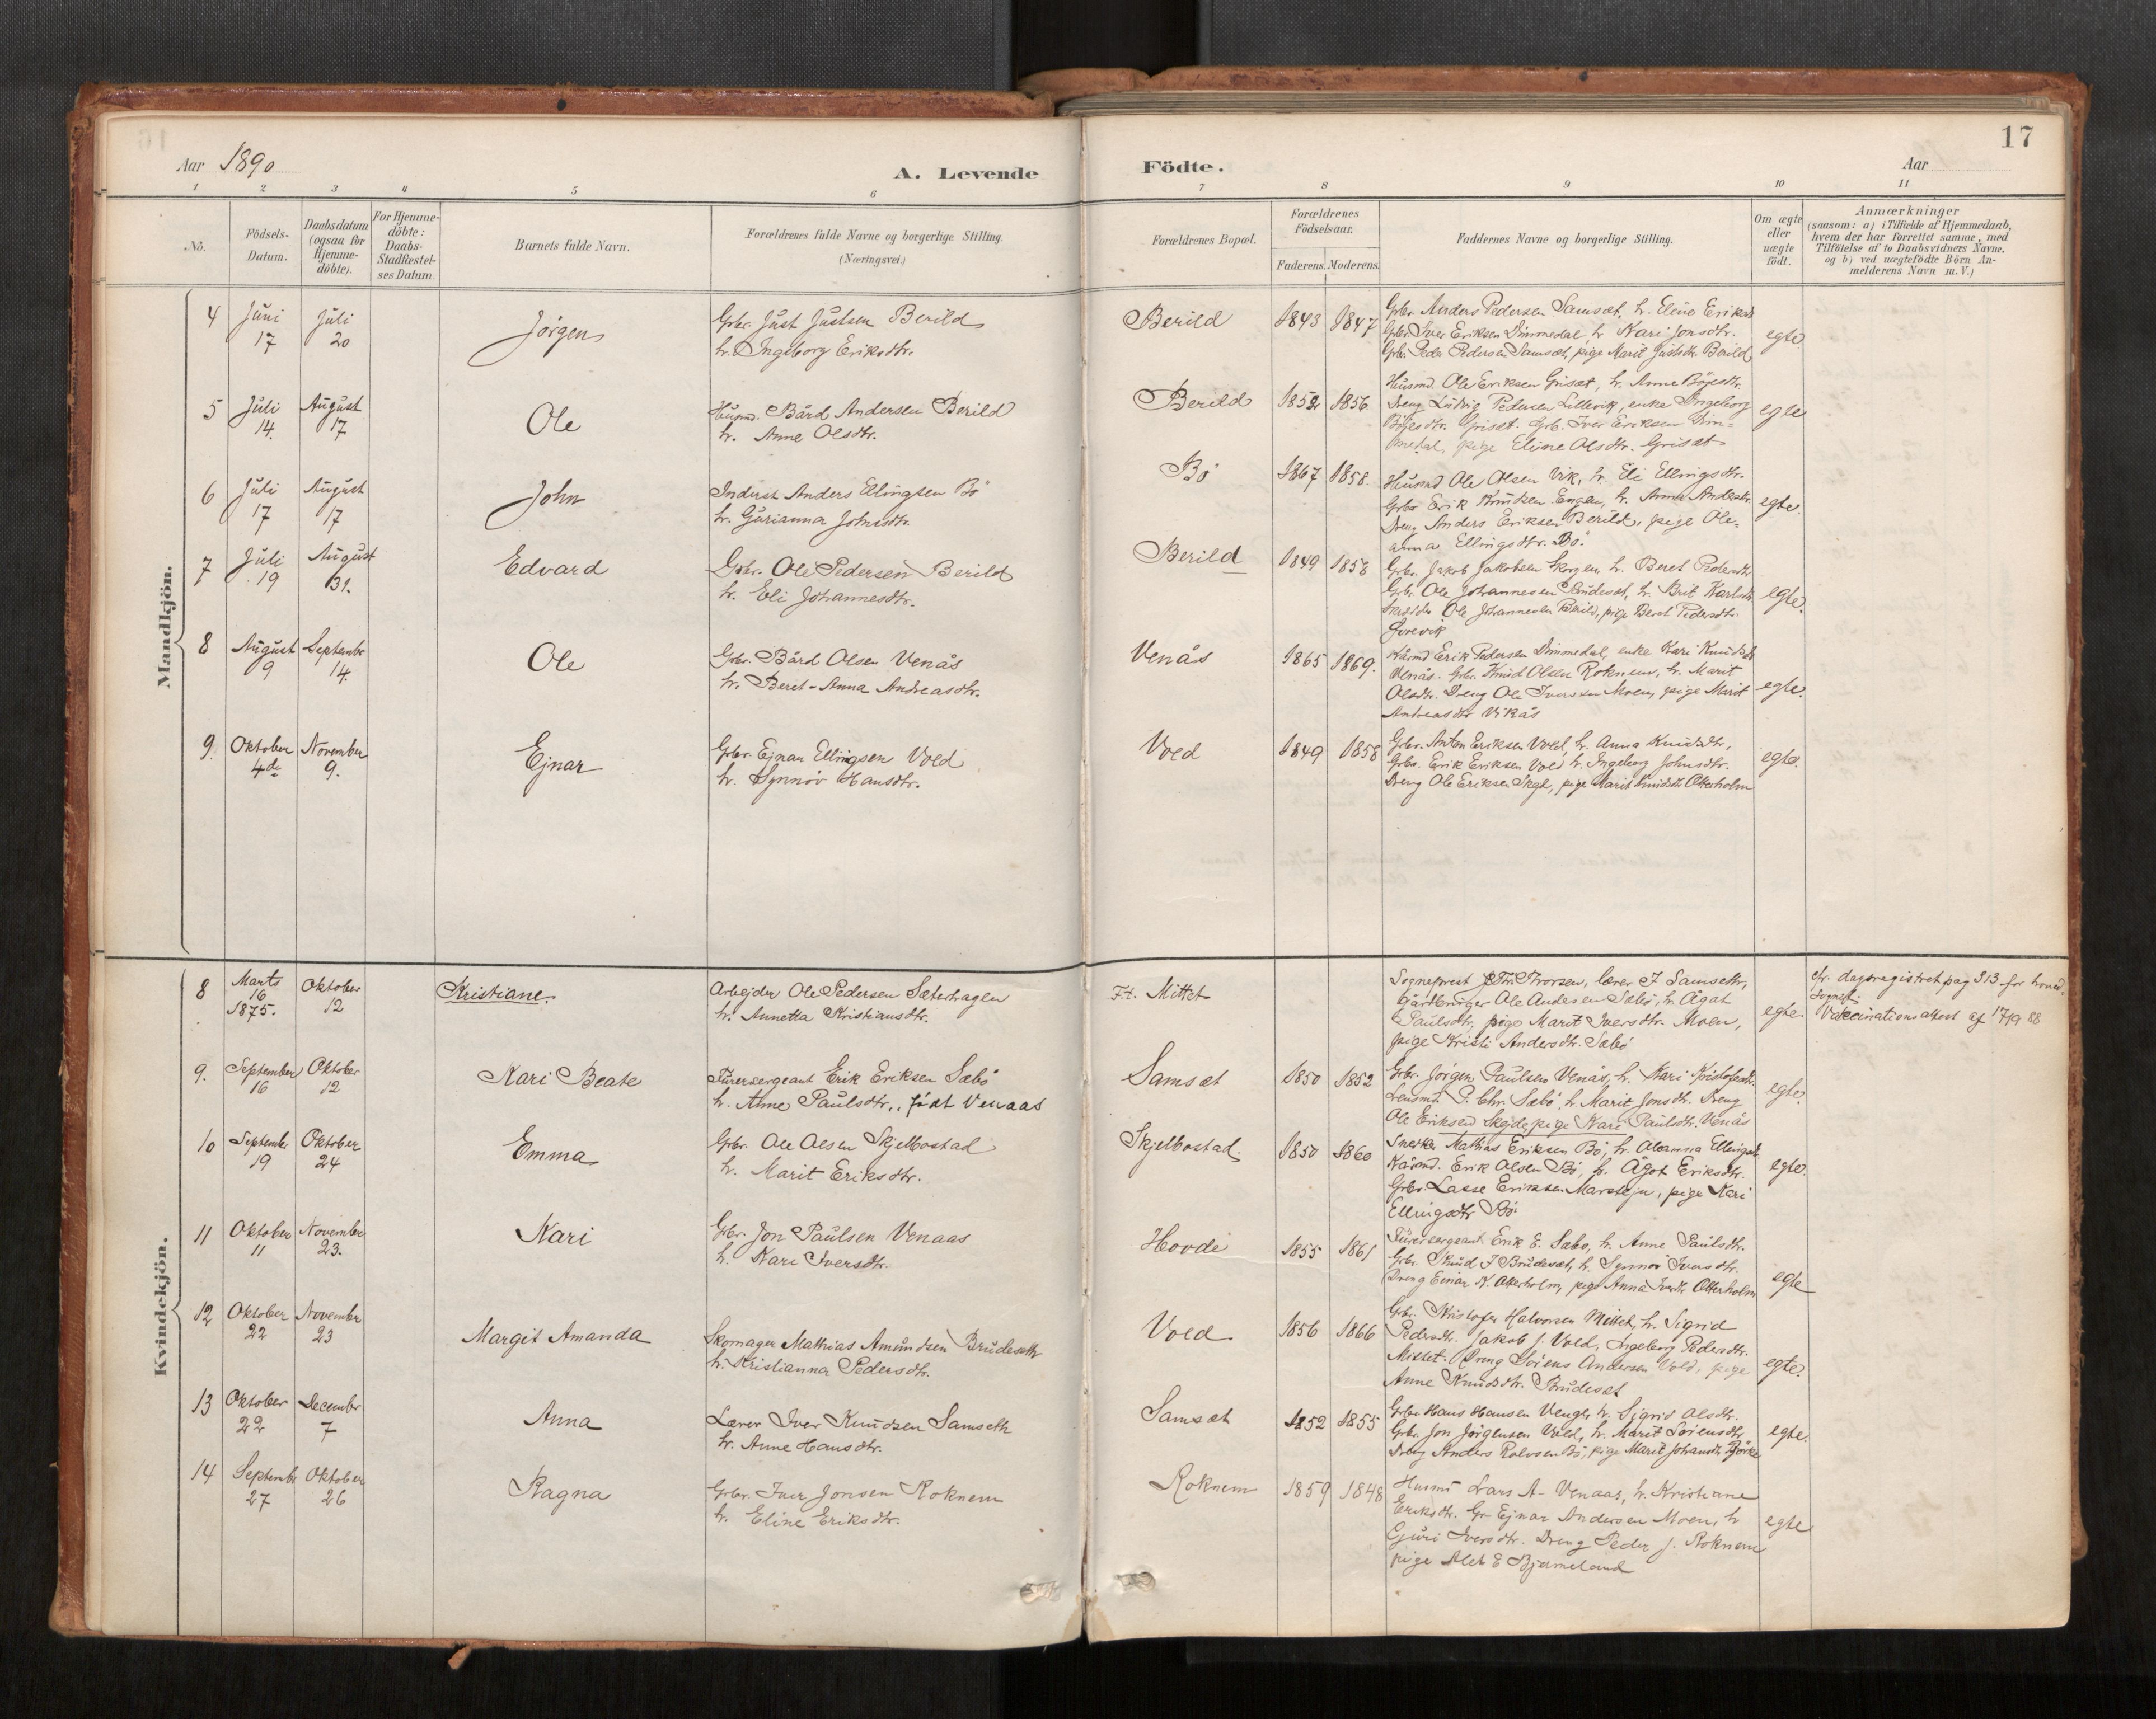 17
Aar 1890
A. Levende Födte.
Aar
1 2 3 4 5 6 7 8 9 10 11
No.
Födsels-
Datum.
Daabsdatum
(ogsaa for
Hjemme-
döbte).
For Hjemme-
döbte:
Daabs-
Stadfæstel-
ses Datum.
Barnets fulde Navn.
Forældrenes fulde Navne og borgerlige Stilling.
(Næringsvei.)
Forældrenes Bopæl.
Forældrenes
Födselsaar.
Faderens. Moderens.
Faddernes Navne og borgerlige Stilling.
Om ægte
eller
uægte
födt.
Anmærkninger
(saasom: a) i Tilfælde af Hjemmedaab,
hvem der har forrettet samme, med
Tilföielse af to Daabsvidners Navne,
og b) ved uægtefödte Börn An-
melderens Navn m. V.)
Mandkjön.
4 Juni 17 Juli 20 Jörgen
Grbr. Just Justsen Berild
h. Ingeborg Eriksdtr.
Berild 1843 1847
Grbr. Anders Pedersen Samsæt, h. Eline Eriksdtr
Grbr. Iver Eriksen Dimmedal, h. Kari Jonsdtr.
Grbr. Peder Pedersen Samsæt, pige Marit Justsdtr. Berild
egte.
5 Juli 14. August 17 Ole
Husmd. Bård Andersen Berild
h. Anne Olsdtr.
Berild 1852 1856
Husmd. Ole Eriksen Grisæt, h. Anne Böjesdtr.
Dreng Ludvig Pedersen Lillevik, enke Ingeborg
Böjesdtr. Grisæt. Grb. Iver Eriksen Dim-
medal, pige Eline Olsdtr. Grisæt
egte
6 Juli 17 August 17 John
Inderst Anders Ellingsen Bö
h. Gurianna Johnsdtr.
Bö 1867 1858.
Husmd Ole Olsen Vik, h. Eli Ellingsdtr.
Grbr Erik Knudsen Engen, h. Anna Andersdtr.
Dreng Anders Eriksen Berild, pige Ole-
anna Ellingsdtr. Bö.
egte.
7 Juli 19 August 31. Edvard
Grbr. Ole Pedersen Berild
h. Eli Johannesdtr.
Berild 1849 1858
Grbr. Jakob Jakobsen Skorgen h. Beret Pedersdtr
Grbr. Ole Johannesen Brudesæt, h. Brit Karlsdtr.
Skrædder Ole Johannesen Berild, pige Beret Pedersdtr.
egte.
8 August 9 September 14. Ole
Grbr. Bård Olsen Venås
h. Beret-Anna Andreasdtr.
Venås 1865 1869.
Kårmd Erik Pedersen Dimmedal, enke Kari Knudsdtr
Venås. Grbr. Knud Olsen Roknem, h. Marit
Olsdtr. Dreng Ole Iversen Moen, pige Marit
Andreasdtr Vikås
egte.
9. Oktober 4de November 9. Ejnar
Grbr. Ejnar Ellingsen Vold
h. Synnöv Hansdtr.
Vold 1849 1858
Grbr. Anton Eriksen Vold, h. Anna Knudsdtr,
Grbr. Erik Eriksen Vold h. Ingeborg Johnsdtr.
Dreng Ole Eriksen Skejd, pige Marit Knudsdtr. Otterholm
egte.
Kvindekjön.
8 Marts 16 1875. Oktober 12 Kristiane.
Arbejder Ole Pedersen Sæterhagen
h. Annetta Kristiansdtr.
F.t. Mittet
Sogneprest Thorsen, lærer I Samseth,
Gårdbruger Ole Andersen Sæbö, h. Ågat
Paulsdtr, pige Marit Iversdtr. Moen,
pige Kristi Andersdtr. Sæbö
egte.
cfr. dagsregistret pag 313 for hoved-
sognet.
Vaccinationsattest af 17/9 88
9. September 16 Oktober 12 Kari Beate
Furersergeant Erik Eriksen Sæbö
h. Anne Paulsdtr., födt Venaas
Samsæt 1850 1852
Grbr. Jörgen Paulsen Venås, h. Kari Kristofersdtr.
Lensmd. P. Chr. Sæbö, h. Marit Jonsdtr. Dreng
Ole Eriksen Skejde, pige Kari Paulsdtr. Venås
egte.
10 September 19 Oktober 24 Emma
Grbr. Ole Olsen Skjelbostad
h. Marit Eriksdtr.
Skjelbostad. 1850 1860
Snedker Mathias Eriksen Bö, h. Oleanna Ellingsdtr.
Kårmd. Erik Olsen Bö, h. Ågot Eriksdtr.
Grbr. Lasse Eriksen Marstein, pige Kari
Ellingsdtr Bö.
egte.
11 Oktober 11 November 23. Kari
Grbr. Jon Paulsen Venaas
h. Kari Iversdtr.
Hovde 1855 1861
Furersergeant Erik E. Sæbo, h. Anne Paulsdtr.
Grbr. Knud J Brudesæt, h. Synnöv Iversdtr.
Dreng Einar K. Otterholm, pige Anna Iversdtr Otterholm
egte
12 Oktober 22 November 23 Margit Amanda
Skomager Mathias Amundsen Brudeseth
h. Kristianna Pedersdtr.
Vold 1856 1866
Grbr. Kristofer Halvorsen Mittet, h. Sigrid
Pedersdtr. Jakob J. Vold, Ingeborg Pedersdtr.
Mittet. Dreng Sörens Andersen Vold, pige
Anne Knudsdtr. Brudesæt
egte.
13 Oktober 22 December 7 Anna
Lærer Iver Knudsen Samseth
h. Anne Hansdtr.
Samsæt 1852 1855
Grbr. Hans Hansen Venge, h. Sigrid Olsdtr.
Grbr. Jon Jörgensen Vold, h. Marit Sörensdtr,
Dreng Anders Rolvsen Bö, pige Marit Johansdtr. Björke
egte.
14 September 27 Oktober 26 Ragna
Grbr. Iver Jonsen Roknem
h. Eline Eriksdtr.
Roknem 1859 1848
Husmd Lars A. Venaas, h. Kristiane
Eriksdtr. Gr. Ejnar Andersen Moen, h
Guri Iversdtr. Dreng Peder J. Roknem
pige Alet E Bjørmeland
egte